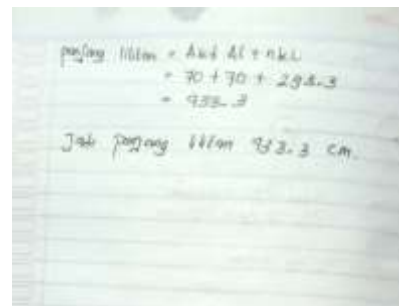 panjang lilitan = 
= 70 + 70 + 293.3
= 933.3
Jadi panjang lilitan 933.3 cm.